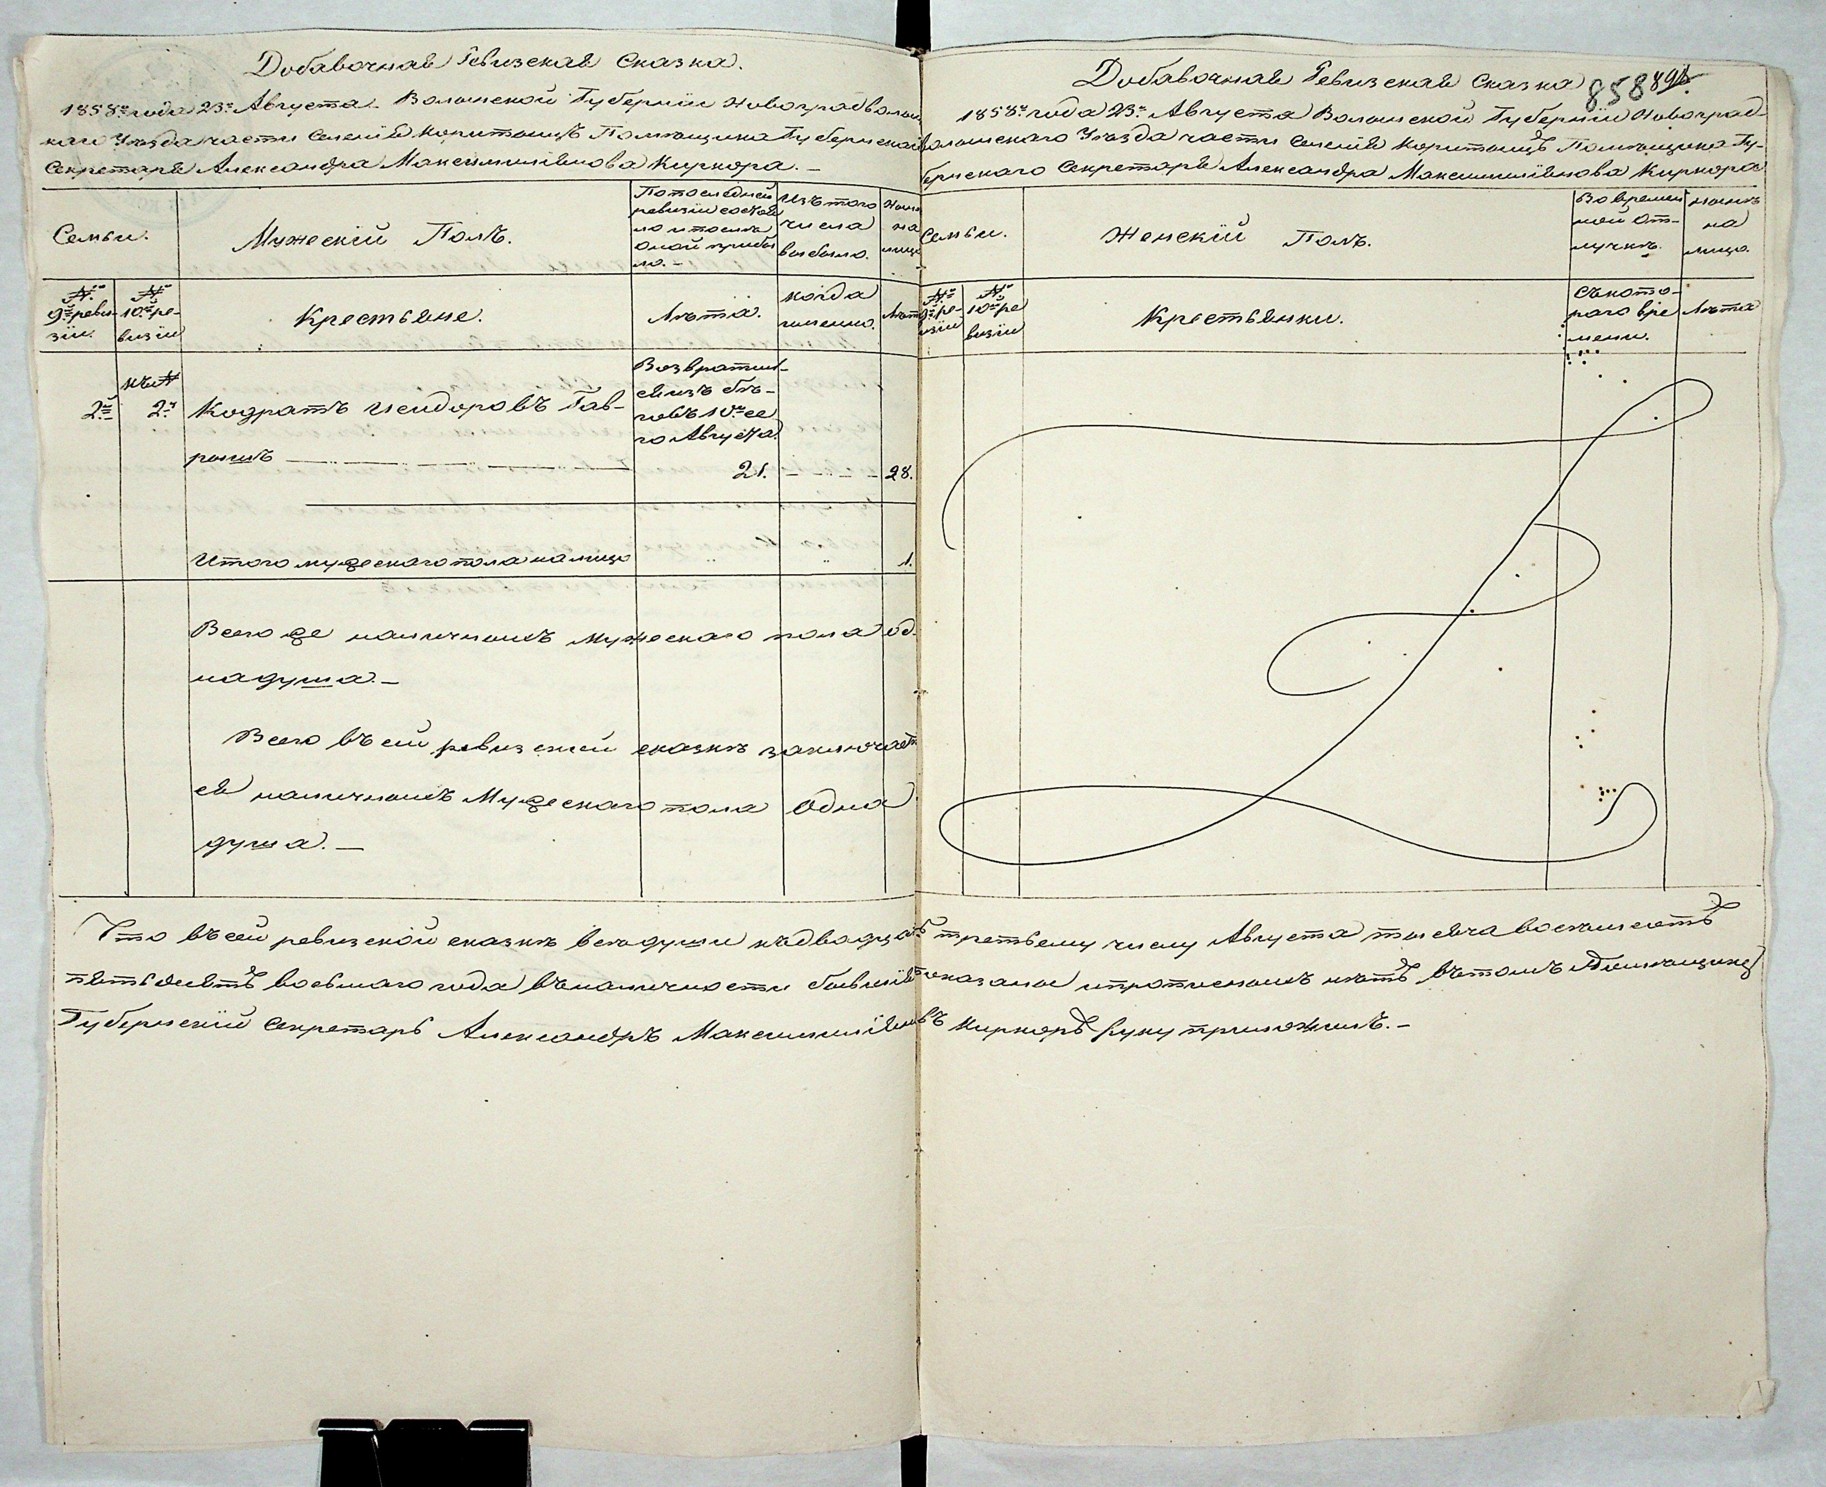 Добавочная Ревизская Сказка.
1858го года 23го Августа. Волынской Губернїи Новоградволын
каго Уѣзда части Селенїя Коритыщъ Помѣщика Губернскаго
Секретаря Александра Максимилїянова Киркора. —
Семьи.
Мужескїй Полъ.
По последней
ревизїи состоя
ло и послѣ
оной прибы
ло. —
Изъ того
числа
выбыло.
Нынѣ
на
лице
№
9й реви-
зїи.
№
10й ре-
визїи
Крестьяне.
Лѣта.
когда
именно.
Лѣта
2й
къ №
2й
Кодратъ Исидоровъ Гав-
рышъ
Возратил-
ся изъ бѣ-
говъ 10го се
го Августа.
21.
28.
Итого мужескаго пола на лицо
1.
Всего же наличныхъ мужескаго пола од-
на душа. —
Всего въ сей ревизской сказкѣ заключает
ся наличныхъ Мужескаго пола одна
душа. —
Добавочная Ревизская Сказка
858
1858го года 23го Августа Волынской Губернїи Новоград-
волынскаго Уѣзда части Селенїя Коритыщъ Помѣщика Гу-
бернскаго Секретаря Александра Максимилїянова Киркора
Семьи.
Женскїй Полъ.
Во времен
ной от-
лучкѣ.
нынѣ
на
лицо.
№
9й ре-
визїи
№
10й ре
визїи
Крестьянки.
Съ кото-
раго вре
мени.
Лѣта
Что въ сей ревизской сказкѣ всѣ души къ двадцать третьему числу Августа тысяча восемьсотъ
пятьдесятъ восьмаго года въ наличности бывшїя показаны и прописныхъ нѣтъ въ томъ Помѣщикъ
Губернскїй Секретарь Александръ Максимилїяновъ Киркоръ руку приложилъ. —